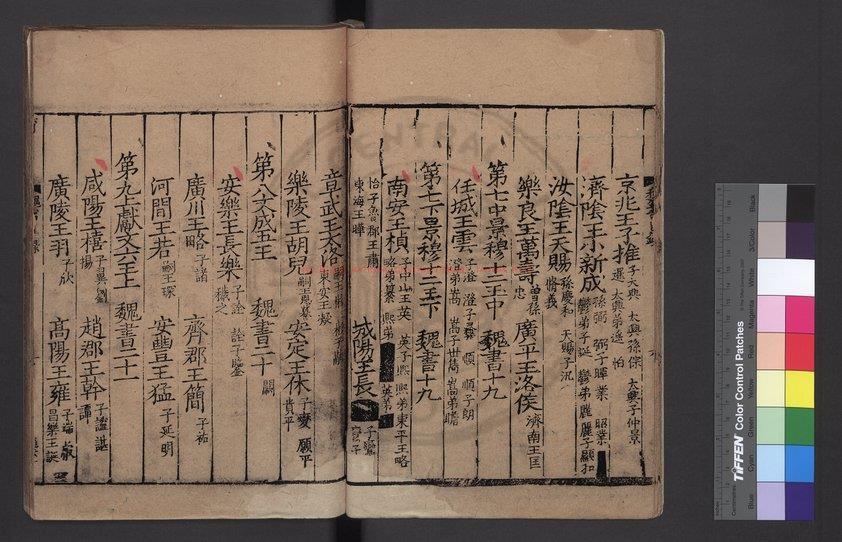 京兆王子推 子太興 太興孫傑 太興子仲景
暹 太興弟遥 恒
濟陰王小新成 孫弼 弼子暉業 昭業
鬱弟子誕 鬱弟麗 麗子顯和
汝陰王天賜 孫慶和 天賜子汎
脩義
樂良王萬壽 曾孫忠 廣平王洛侯 濟南王匡
第七中景穆十二王中 魏書十九
任城王雲 子澄 澄子彝 順 順子朗
澄弟嵩 嵩子世儁 嵩弟贍
第七下景穆十二王下 魏書十九
南安王楨 子中山王英 英子熙 熙弟東平王略
略弟纂 熙弟 英弟
怡子魯郡王肅 城陽王長
東海王曄 子鸞
章武王太洛
東安王凝
樂陵王胡兒 安定王休 子燮 願平
貴平
第八文成五王 魏書二十
安樂王長樂 子詮 詮子鑒 嗣
廣川王略 子諧 齊郡王簡 子祐
河間王若 嗣王琛 安豐王猛 子延明
第九上獻文六王上 魏書二十一
咸陽王禧 趙郡王幹 子謐 諶
譚
廣陵王羽 子欣 高陽王雍 子端 叡
昌樂王誕
CENTRAL
TIFFEN Color Control Patches
Blue Cyan Green Yellow Red Magenta White 3/Color Black